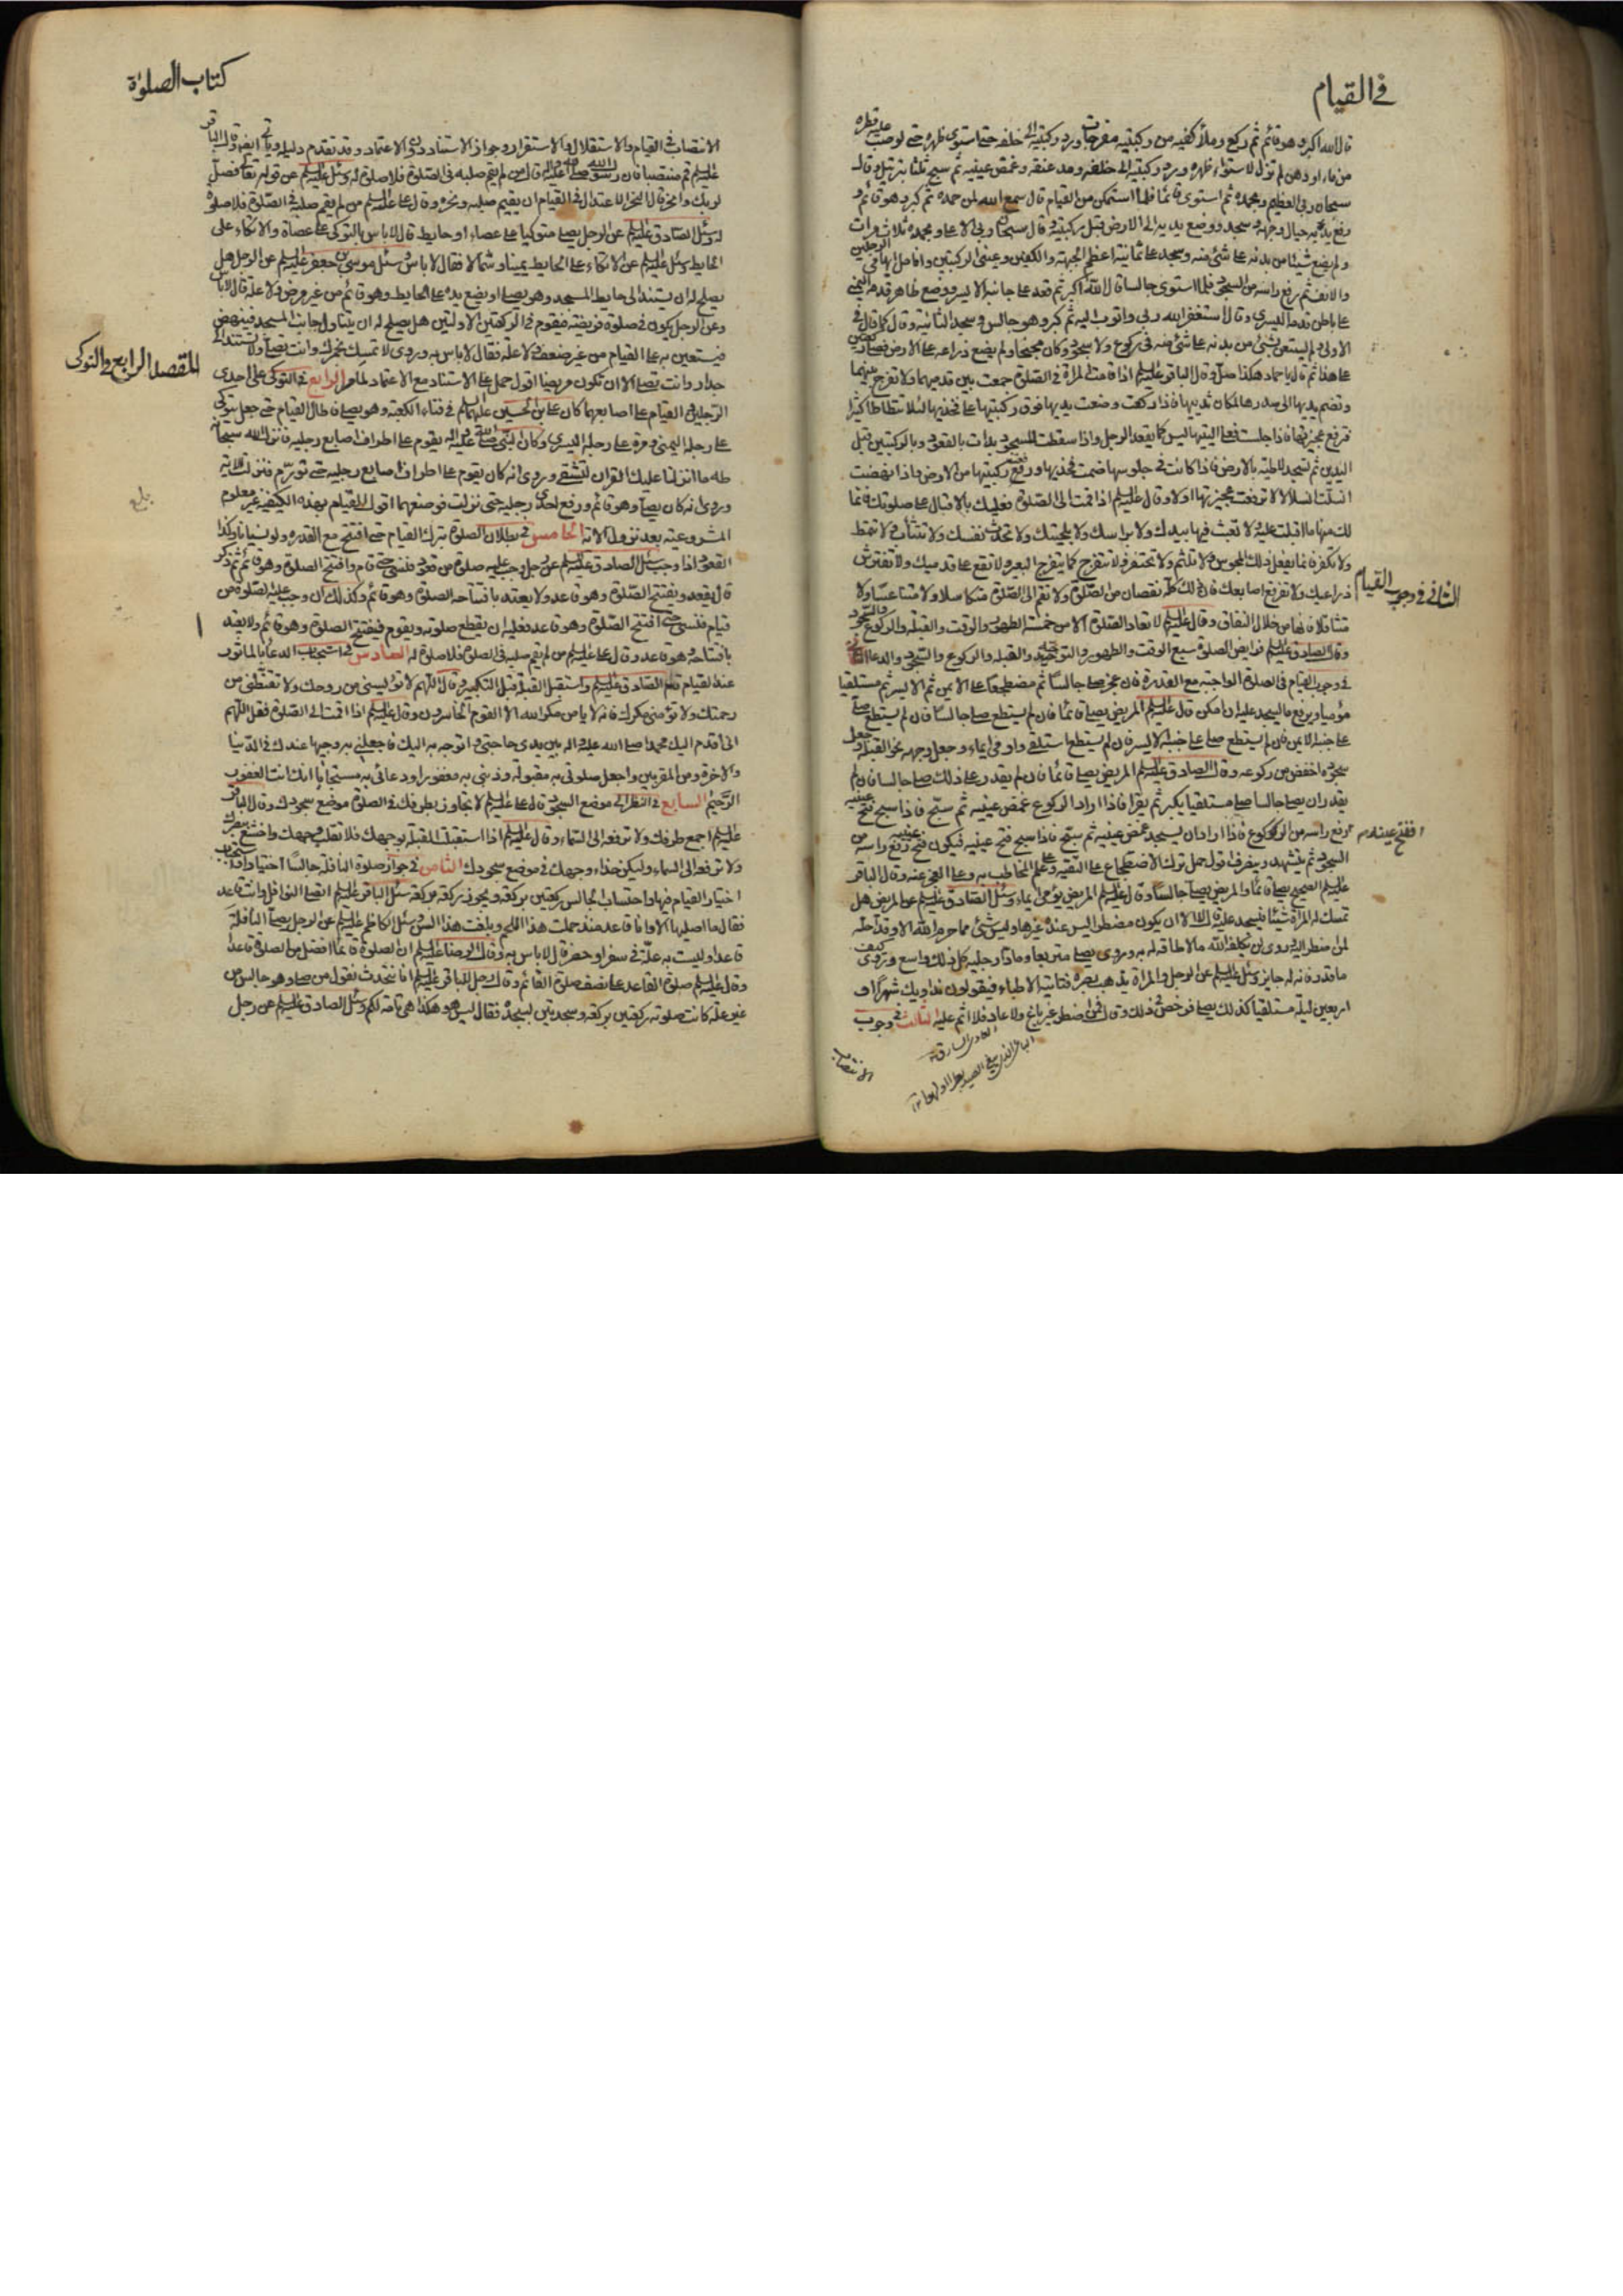 في القيام
قال الله اكبر وهو قائم ثم ركع وملأ كفيه من ركبتيه مفرجات ورد ركبتيه الى خلفه حتى استوى ظهره حتى لو صب عليه قطرة
من ماء او دهن لم تزل لاستواء ظهره ورد ركبتيه الى خلفه ومد عنقه وغمض عينيه ثم سبح ثلثا بترتيل وقال
سبحان ربي العظيم وبحمده ثم استوى قائما فلما استمكن من القيام قال سمع الله لمن حمده ثم كبر وهو قائم و
رفع يديه حيال وجهه وسجد ووضع يديه الى الارض قبل ركبتيه وقال سبحان ربي الاعلى وبحمده ثلاث مرات
ولم يضع شيئا من بدنه على شئ منه وسجد على ثمانية اعظم الجبهة والكفين وعيني الركبتين وانامل ابهامي الرجلين
والانف ثم رفع راسه من السجود فلما استوى جالسا قال الله اكبر ثم قعد على جانبه الايسر ووضع ظاهر قدمه اليمنى
على باطن قدمه اليسرى وقال استغفر الله ربي واتوب اليه ثم كبر وهو جالس وسجد الثانية وقال كما قال في
الاولى ولم يستعن بشئ من بدنه على شئ منه في ركوع ولا سجود وكان مجنحا ولم يضع ذراعيه على الارض فصلى ركعتين
على هذا ثم قال يا حماد هكذا صل وقال الباقر عليه السلام اذا قامت المراة في الصلوة جمعت بين قدميها ولا تفرج بينهما
وتضم يديها الى صدرها لمكان ثدييها فاذا ركعت وضعت يديها فوق ركبتيها على فخذيها لئلا تتطاطا كثيرا
فترفع عجيزتها فاذا جلست فعلى اليتيها ليس كما يقعد الرجل واذا سقطت للسجود بدات بالقعود وبالركبتين قبل
اليدين ثم تسجد لاطئة بالارض فاذا كانت في جلوسها ضمت فخذيها ورفعت ركبتيها من الارض واذا نهضت
انسلت انسلالا لا ترفع عجيزتها اولا وقال عليه السلام اذا قمت الى الصلوة فعليك بالاقبال على صلوتك فانما
لك منها ما اقبلت عليه ولا تعبث فيها بيدك ولا براسك ولا بلحيتك ولا تحدث نفسك ولا تتثأب ولا تتمط
ولا تكفر فانما يفعل ذلك المجوس ولا تلثم ولا تحتفز ولا تتفرج كما يتفرج البعير ولا تقع على قدميك ولا تفترش
الثاني في وجوب القيام
ذراعيك ولا تفرقع اصابعك فان ذلك كله نقصان من الصلوة ولا تقم الى الصلوة متكاسلا ولا متناعسا ولا
متثاقلا فانها من خلال النفاق وقال عليه السلام لا تعاد الصلوة الا من خمسة الطهور والوقت والقبلة والركوع والسجود
وقال الصادق عليه السلام فرائض الصلوة سبع الوقت والطهور والتوجه والقبلة والركوع والسجود والدعاء الثاني
في وجوب القيام في الصلوة الواجبة مع القدرة فان عجز صلى جالسا ثم مضطجعا على الايمن ثم الايسر ثم مستلقيا
موميا ويرفع ما يسجد عليه ان امكن قال عليه السلام المريض يصلي قائما فان لم يستطع صلى جالسا فان لم يستطع صلى
على جنبه الايمن فان لم يستطع صلى على جنبه الايسر فان لم يستطع استلقى واومى ايماء وجعل وجهه نحو القبلة وجعل
سجوده اخفض من ركوعه وقال الصادق عليه السلام المريض يصلي قائما فان لم يقدر على ذلك صلى جالسا فان لم
يقدر ان يصلي جالسا صلى مستلقيا يكبر ثم يقرا فاذا اراد الركوع غمض عينيه ثم سبح فاذا سبح فتح عينيه
فيكون فتح عينيه رفع راسه من الركوع فاذا اراد ان يسجد غمض عينيه ثم سبح فاذا سبح فتح عينيه فيكون فتح عينيه رفع راسه من
السجود ثم يتشهد وينصرف اقول حمل ترك الاضطجاع على التقية وعلى علم المخاطب به وعلى العجز عنه وقال الباقر
عليه السلام الصحيح يصلي قائما والمريض يصلي جالسا وقال عليه السلام المريض يومى ايماء وسئل الصادق عليه السلام عن المريض هل
تمسك له المراة شيئا فيسجد عليه قال لا الا ان يكون مضطرا ليس عنده غيرها وليس شئ مما حرم الله الا وقد احله
لمن اضطر اليه وروي لن يكلفه الله ما لا طاقة له به وروي يصلي متربعا ومادا رجليه كل ذلك واسع وروي كيف
ما قدر فانه له جايز وسئل عليه السلام عن الرجل والمراة يذهب بصره فتاتيه الاطباء فيقولون نداويك شهرا او
اربعين ليلة مستلقيا كذلك يصلي فرخص في ذلك وقال فمن اضطر غير باغ ولا عاد فلا اثم عليه الثالث في وجوب
الانتصاب
العادي السارق
كتاب الصلوة
الانتصاب في القيام والاستقلال والاستقرار وجواز الاستناد دون الاعتماد وقد تقدم دليله وياتي ايضا وقال الباقر
عليه السلام قم منتصبا فان رسول الله صلى الله عليه واله قال من لم يقم صلبه في الصلوة فلا صلوة له وسئل عليه السلام عن قوله تعالى فصل
لربك وانحر قال النحر الاعتدال في القيام ان يقيم صلبه ونحره وقال علي عليه السلام من لم يقم صلبه في الصلوة فلا صلوة
له وسئل الصادق عليه السلام عن الرجل يصلي متوكيا على عصاء او حايط قال لا باس بالتوكي على عصاة والاتكاء على
الحايط وسئل عليه السلام عن الاتكاء على الحايط يمينا وشمالا فقال لا باس وسئل موسى بن جعفر عليه السلام عن الرجل هل
يصلح له ان يستند الى حايط المسجد وهو يصلي او يضع يده على الحايط وهو قائم من غير مرض ولا علة قال لا باس
وعن الرجل يكون في صلوة فريضة فيقوم في الركعتين الاولتين هل يصلح له ان يتناول جانب المسجد فينهض
فيستعين به على القيام من غير ضعف ولا علة فقال لا باس به وروي لا تمسك بخمرك وانت تصلي ولا تستند الى
المقصد الرابع في التوكى
جدار وانت تصلي الا ان تكون مريضا اقول حمل على الاستناد مع الاعتماد لما مر الرابع في التوكى على احدى
الرجلين في القيام على اصابعهما كان علي بن الحسين عليهما السلام في فناء الكعبة وهو يصلي فاطال القيام حتى جعل يتوكى
على رجله اليمنى ومرة على رجله اليسرى وكان النبي صلى الله عليه واله يقوم على اطراف اصابع رجليه فانزل الله سبحانه
طه ما انزلنا عليك القران لتشقى وروي انه كان يقوم على اطراف اصابع رجليه حتى تورم فنزلت الاية
وروي انه كان يصلي وهو قائم ورفع احدى رجليه حتى نزلت فوضعهما اقول القيام بهذه الكيفية غير معلوم
بلغ
المشروعية بعد نزول الاية الخامس في بطلان الصلوة بترك القيام حتى افتتح مع القدرة ولو نسيانا وكذا
القعود اذا وجب سئل الصادق عليه السلام عن رجل وجب عليه صلوة من قعود فنسي حتى قام وافتتح الصلوة وهو قائم ثم ذكر
قال يقعد ويفتتح الصلوة وهو قاعد ولا يعتد بافتتاحه الصلوة وهو قائم وكذلك ان وجب عليه الصلوة من
قيام فنسي حتى افتتح الصلوة وهو قاعد فعليه ان يقطع صلوته ويقوم فيفتتح الصلوة وهو قائم ولا يعتد
بافتتاحه وهو قاعد وقال علي عليه السلام من لم يقم صلبه في الصلوة فلا صلوة له السادس في استحباب الدعاء بالماثور
عند القيام قال الصادق عليه السلام واستقبل القبلة قبل التكبير وقال اللهم لا تؤيسني من روحك ولا تقنطني من
رحمتك ولا تؤمني مكرك فانه لا يامن مكر الله الا القوم الخاسرون وقال عليه السلام اذا قمت الى الصلوة فقل اللهم
اني اقدم اليك محمدا صلى الله عليه واله بين يدي حاجتي واتوجه به اليك فاجعلني به وجيها عندك في الدنيا
والاخرة ومن المقربين واجعل صلوتي به مقبولة وذنبي به مغفورا ودعائي به مستجابا انك انت الغفور
الرحيم السابع في النظر الى موضع السجود قال علي عليه السلام لا تجاوز بطرفك في الصلوة موضع سجودك وقال الباقر
عليه السلام اجمع طرفك ولا ترفعه الى السماء وقال عليه السلام اذا استقبلت القبلة بوجهك فلا تقلب وجهك واخشع ببصرك
ولا ترفعه الى السماء وليكن حذاء وجهك في موضع سجودك الثامن في جواز صلوة النافلة جالسا اختيارا واستحباب
اختيار القيام فيها واحتساب الجالس ركعتين بركعة ويجوز ركعة بركعة سئل الباقر عليه السلام اتصلي النوافل وانت قاعد
فقال ما اصليها الا وانا قاعد منذ حملت هذا اللحم وبلغت هذا السن وسئل الكاظم عليه السلام عن الرجل يصلي النافلة
قاعدا وليست به علة في سفر او حضر قال لا باس به وقال الرضا عليه السلام ان الصلوة قائما افضل من الصلوة قاعدا
وقال عليه السلام صلوة القاعد على نصف صلوة القائم وقال رجل للباقر عليه السلام انا نتحدث نقول من صلى وهو جالس من
غير علة كانت صلوته ركعتين بركعة وسجدتين بسجدة فقال ليس هو هكذا هي تامة لكم وسئل الصادق عليه السلام عن رجل